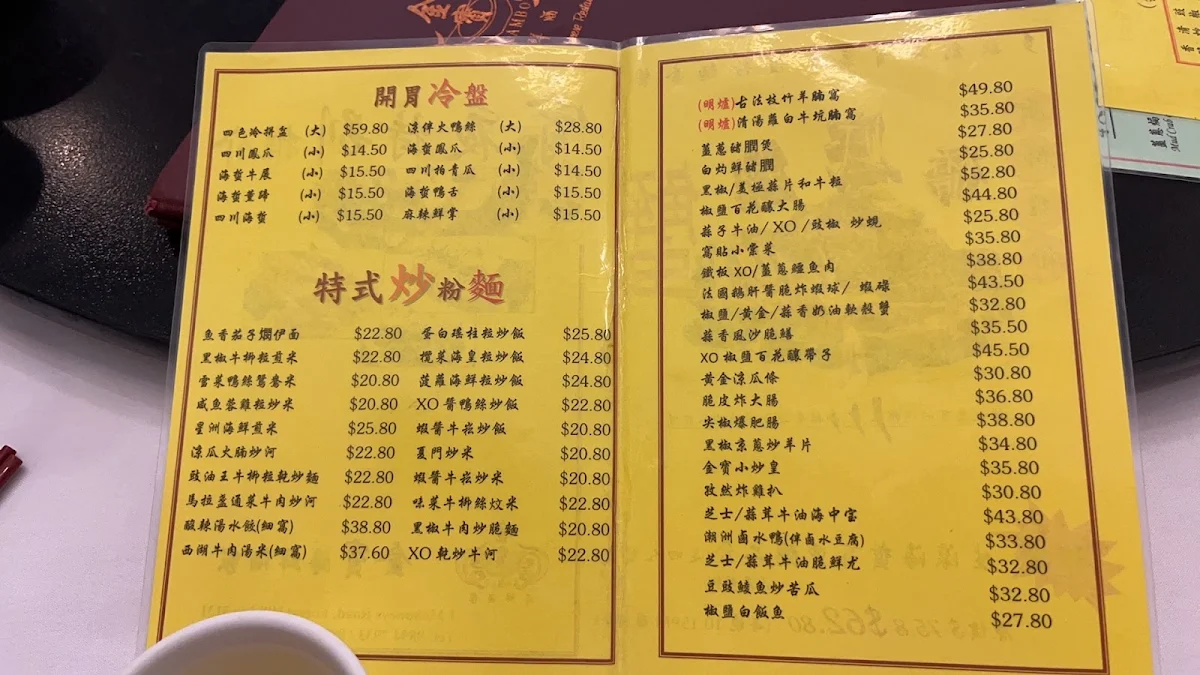 開胃冷盤
四色冷拼盆 (大) $59.80 涼伴火鴨絲 (大) $28.80
四川鳳爪 (小) $14.50 海蜇鳳爪 (小) $14.50
海蜇牛展 (小) $15.50 四川拍青瓜 (小) $14.50
海蜇薰蹄 (小) $15.50 海蜇鴨舌 (小) $15.50
四川海蜇 (小) $15.50 麻辣鮮掌 (小) $15.50
特式炒粉麵
魚香茄子燜伊面 $22.80 蛋白瑤柱粒炒飯 $25.80
黑椒牛柳粒煎米 $22.80 欖菜海皇粒炒飯 $24.80
雪菜鴨絲鴛鴦米 $20.80 菠蘿海鮮粒炒飯 $24.80
咸魚蓉雞粒炒米 $20.80 XO 醬鴨絲炒飯 $22.80
星洲海鮮煎米 $25.80 蝦醬牛崧炒飯 $20.80
涼瓜火腩炒河 $22.80 厦門炒米 $20.80
豉油王牛柳粒乾炒麵 $22.80 蝦醬牛崧炒米 $20.80
馬拉盞通菜牛肉炒河 $22.80 味菜牛柳絲炆米 $22.80
酸辣湯水餃(細窩) $38.80 黑椒牛肉炒脆麵 $20.80
西湖牛肉湯米(細窩) $37.60 XO 乾炒牛河 $22.80
(明爐)古法枝竹羊腩窩 $49.80
(明爐)清湯蘿白牛坑腩窩 $35.80
薑蔥豬膶煲 $27.80
白灼鮮豬膶 $25.80
黑椒/美極蒜片和牛粒 $52.80
椒鹽百花釀大腸 $44.80
蒜子牛油/ XO /豉椒 炒蜆 $25.80
窩貼小棠菜 $35.80
鐵板 XO/薑蔥鱷魚肉 $38.80
法國鵝肝醬脆炸蝦球/ 蝦碌 $43.50
椒鹽/黃金/蒜香奶油軟殼蟹 $32.80
蒜香風沙脆鱔 $35.50
XO 椒鹽百花釀帶子 $45.50
黃金涼瓜條 $30.80
脆皮炸大腸 $36.80
尖椒爆肥腸 $38.80
黑椒京蔥炒羊片 $34.80
金寶小炒皇 $35.80
孜然炸雞扒 $30.80
芝士/蒜茸牛油海中宝 $43.80
潮洲鹵水鴨(伴鹵水豆腐) $33.80
芝士/蒜茸牛油脆鮮尤 $32.80
豆豉鯪魚炒苦瓜 $32.80
椒鹽白飯魚 $27.80